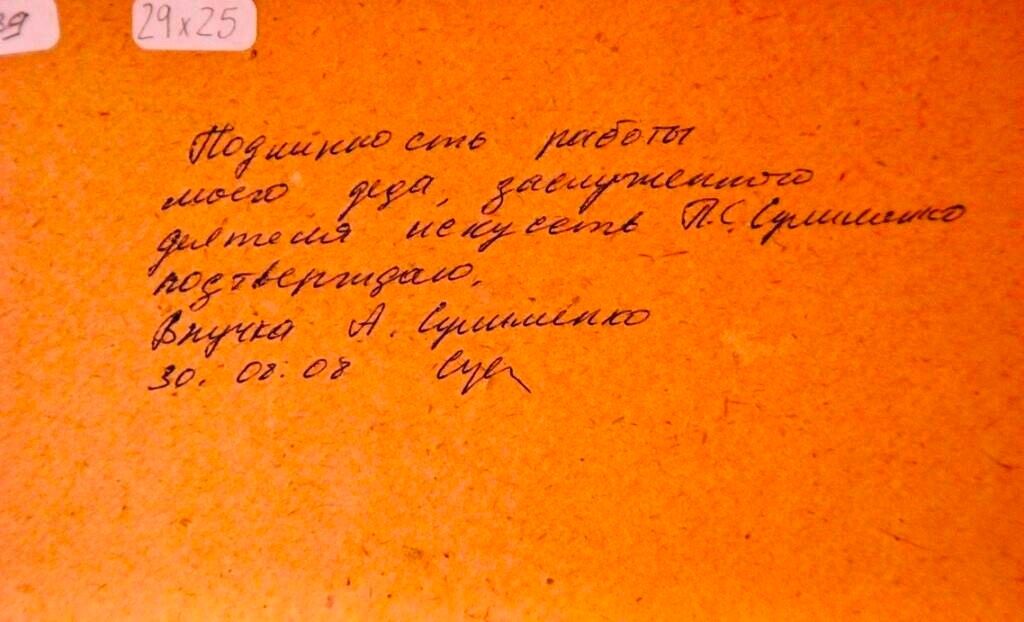 29x25
Подлинность работы
моего деда, заслуженного
деятеля искусств П.С. Сулименко
подтверждаю.
Внучка А. Сулименко
30.08.08